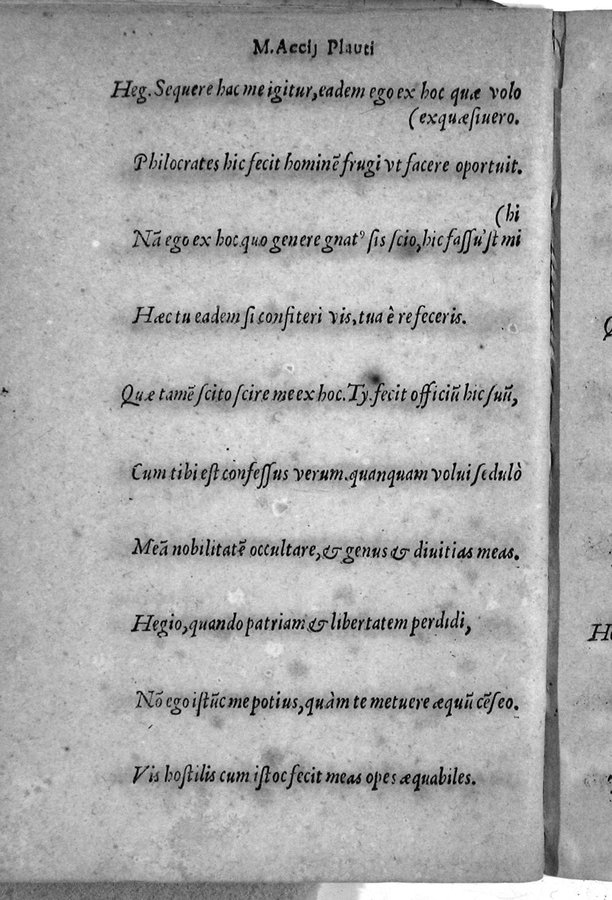 M. Accij Plauti
Heg. Sequere hac me igitur, eadem ego ex hoc quæ volo
(exquæſiuero.
Philocrates hic fecit hominē frugi vt facere oportuit.
(hi
Nā ego ex hoc quo genere gnatꝰ ſis ſcio, hic faſſu'ſt mi
Hæc tu eadem ſi confiteri vis, tua ê re feceris.
Quæ tamē ſcito ſcire me ex hoc. Ty. fecit officiū hic ſuū,
Cum tibi eſt confeſſus verum. quanquam volui ſedulò
Meā nobilitatē occultare, & genus & diuitias meas.
Hegio, quando patriam & libertatem perdidi,
Nō ego iſtūc me potius, quàm te metuere æquū cēſeo.
Vis hoſtilis cum iſtoc fecit meas opes æquabiles.